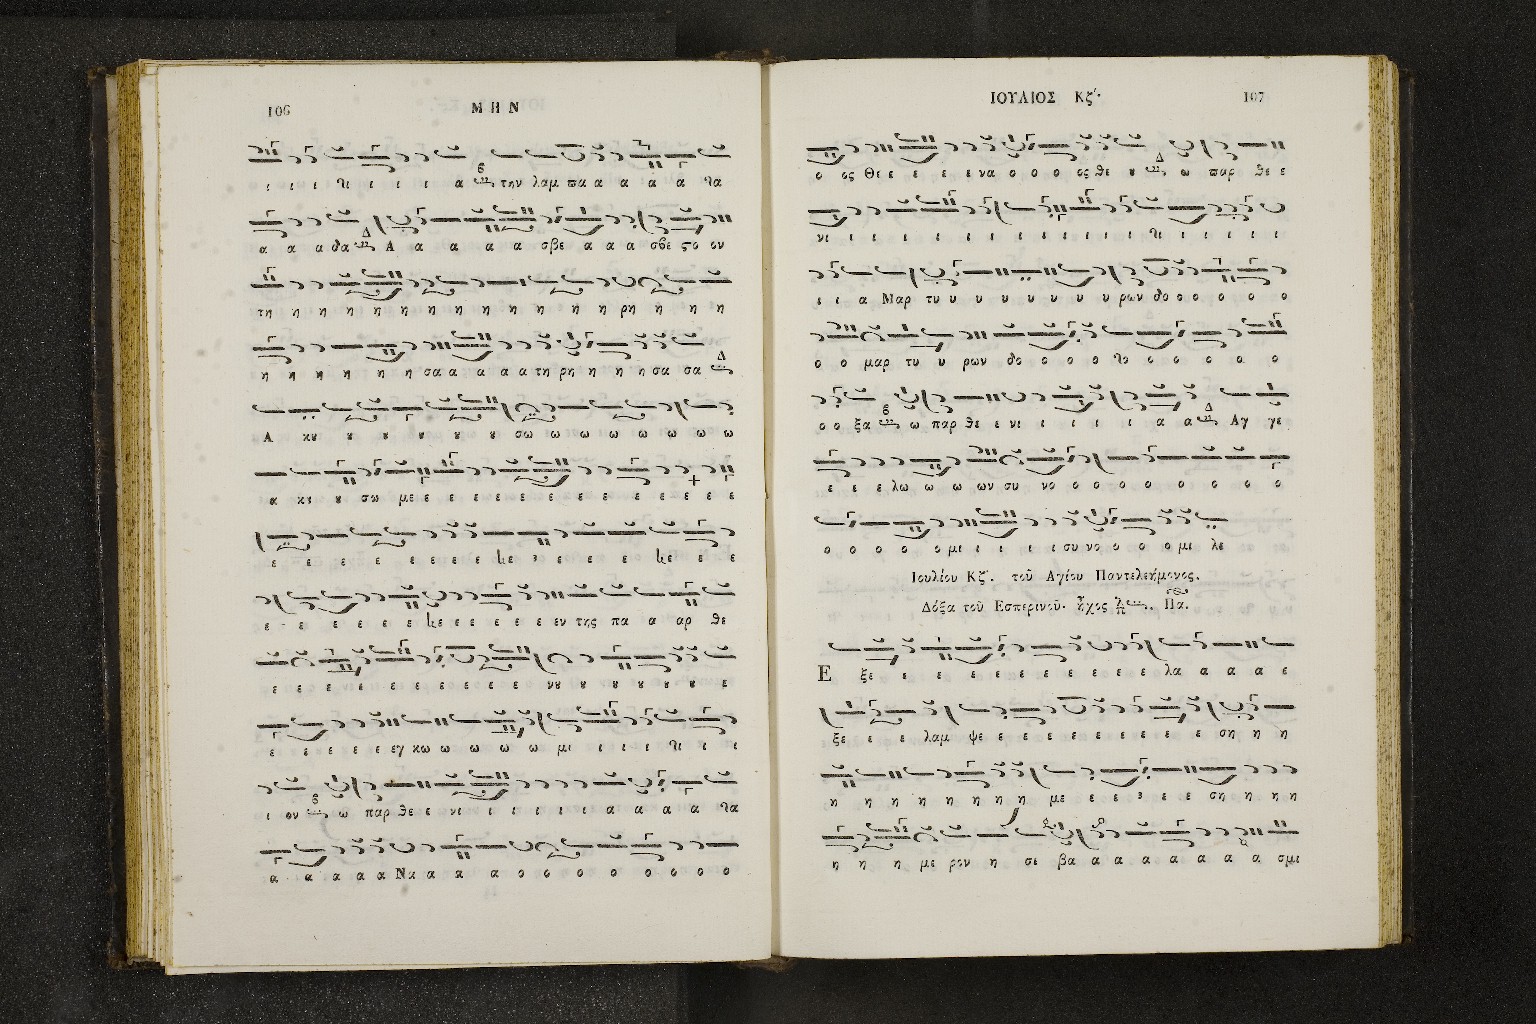 106
ΜΗΝ
ι ι ι τι ι ι ι α την λαμ πα α α α α τα
α α α δα Α α α α α σβε α α α σβε ςο ον
τη η η η η η η η η η η η η ρη η η η
η η η η η η σα α α α α τη ρη η η η σα σα
Α κȣ ȣ ȣ ȣ ȣ ȣ σω ω ω ω ω ω ω ω
α κȣ ȣ ȣ σω με ε ε ε ε ε ε ε ε ε ε ε ε ε
ε ε ε ε ε ε ε ε ε ε ε ε ε
ε ε ε ε ε ε ε ε ε ε ε εν της πα α αρ θε
ε ε ε ε ε ε ε ε ε ε ε νȣ ȣ ȣ ȣ ȣ ȣ ε
ε ε ε ε ε εγ κω ω ω ω ω μι ι ι ι τι ι ι
ι ον ω παρ θε ε νι ι ι ι ι ι α α α α τα
α α α α α Να α α α ο ο ο ο ο ο ο ο ο
ΙΟΥΛΙΟΣ Κζ΄.
107
ο ος Θε ε ε ε ε να ο ο ο ος θε ȣ ω παρ θε ε
νι ι ι ι ι ι ι ι ι ι ι ι ι τι ι ι ι ι ι
ι ι α Μαρ τυ υ υ υ υ υ υ υ ρων δο ο ο ο ο ο ο
ο ο μαρ τυ υ ρων δο ο ο ο ο ο ο ο ο ο ο
ο ο ξα ω παρ θε ε νι ι ι ι ι α α Αγ γε
ε ε ε λω ω ω ων συ νο ο ο ο ο ο ο ο ο
ο ο ο ο ο μι ι ι ι ι συ νο ο ο ο μι λε
Ιουλίου Κζ΄. τοῦ Αγίου Παντελεήμονος.
Δόξα τοῦ Εσπερινοῦ. ἦχος Πα.
Ε ξε ε ε ε ε ε ε ε ε ε ε ε λα α α α ε
ξε ε ε λαμ ψε ε ε ε ε ε ε ε ε ε ση η η
η η η η η η η η με ε ε ε ε ε ση η η η
η η η με ρον η σι βα α α α α α α α α σμι